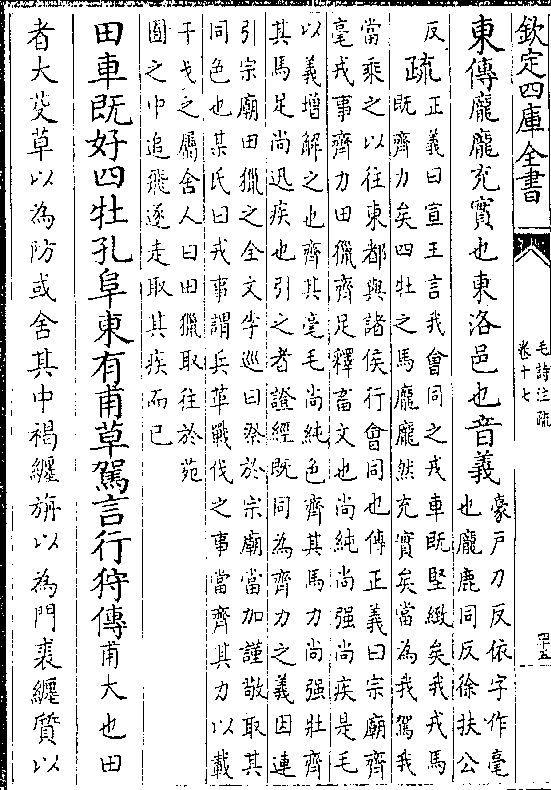 欽定四庫全書
毛詩注疏
卷十七
四十五
東傳龐龐充實也東洛邑也音義
豪戸刀反依字作毫
也龐鹿同反徐扶公
反疏正義曰宣王言我會同之戎車既堅緻矣我戎馬
既齊力矣四牡之馬龐龐然充實矣當為我駕我
當乘之以往東都與諸侯行會同也傳正義曰宗廟齊
毫戎事齊力田獵齊足釋畜文也尚純尚强尚疾是毛
以義增解之也齊其毫毛尚純色齊其馬力尚强壯齊
其馬足尚迅疾也引之者證經既同為齊力之義因連
引宗廟田獵之全文李巡曰祭於宗廟當加謹敬取其
同色也某氏曰戎事謂兵革戰伐之事當齊其力以載
干戈之屬舍人曰田獵取往於苑
囿之中追飛逐走取其疾而已
田車既好四牡孔阜東有甫草駕言行狩傳甫大也田
者大芟草以為防或舍其中褐纏旃以為門裘纏質以